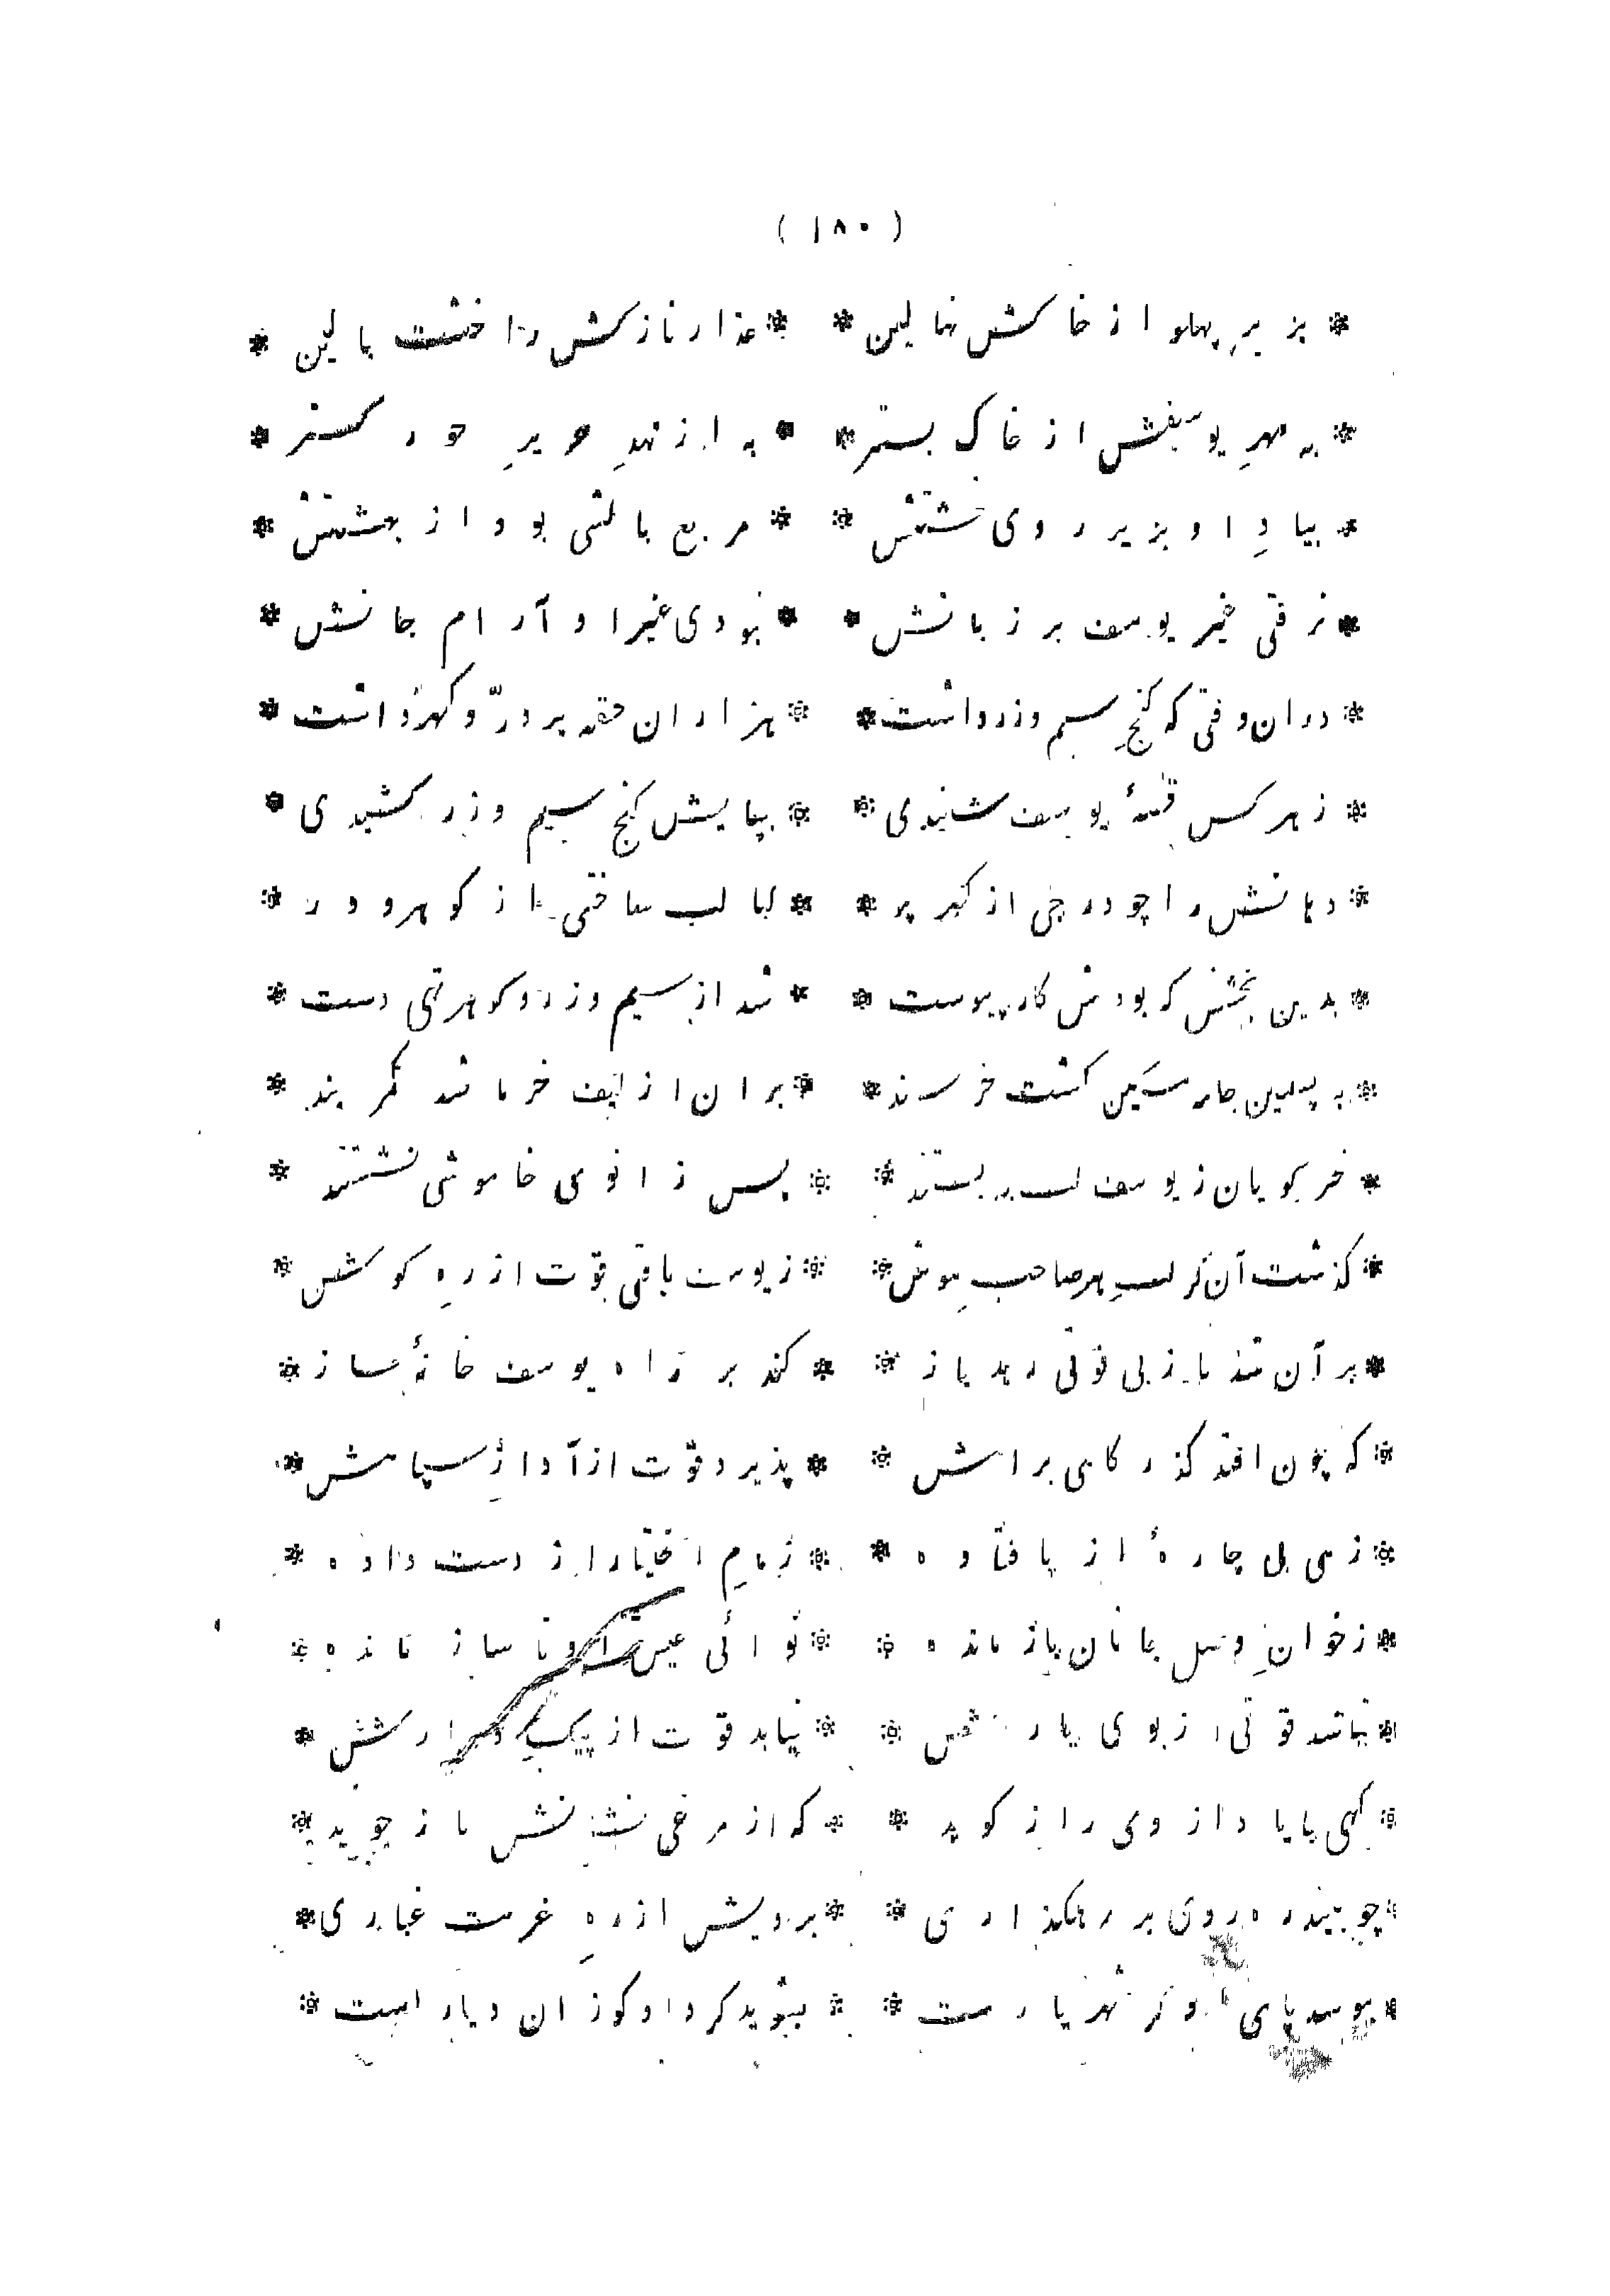 ( ۱۸۰ )
* بزیرِ پهلو از خاکش نهالین * * عذار نازکش را خشت بالین *
* به مهرِ یوسفش از خاک بستر * * به از مهدِ حریرِ حور کستر *
* بیادِ او بزیر روی خشتش * * مربع بالشی بود از بهشتش *
* نرفتی غیر یوسف بر زبانش * * نبودی غیر او آرام جانش *
* دران وقتی که کنجِ سیم و زر داشت * * هزاران حقه پر درّ و کهر داشت *
* زهر کس قصهٔ یوسف شنیدی * * بپایش کنج سیم و زر کشیدی *
* دهانش را چو درجی از کهر پر * * لبالب ساختی از کوهر و در *
* بدین بخشش که بودش کار پیوست * * شد از سیم و زر و کوهر تهی دست *
* به پشمین جامه مسکین کشت خرسند * * بران از لیف خرما شد کمر بند *
* خبر کویان ز یوسف لب ببستند * * پس زانوی خاموشی نشستند *
* کذشت آن کز لبِ هر صاحب هوش * * ز یوسف یافتی قوت از رهِ کوش *
* بر آن شد تا ز بی قوتی رهد باز * * کند بر راه یوسف خانهٔ ساز *
* که چون افتد کذر کاهی براهش * * پذیرد قوت از آوازِ سپاهش *
* زهی بی چارهٔ از پا فتاده * * زمامِ اختیار از دست داده *
* ز خوانِ وصل جانان باز مانده * * نوائی عیش او ناساز مانده *
* نباشد قوتی از بوی یارش * * نیابد قوت از پیک
* کهی با یاد از وی راز کوید * * که از مرغی نشانش باز جوید *
* چو بیند ره روی بر رهکذاری * * برویش از رهِ غربت غباری *
* ببوسد پای او کز شهر یارست * * بشوید کرد او کوزان دیارست *